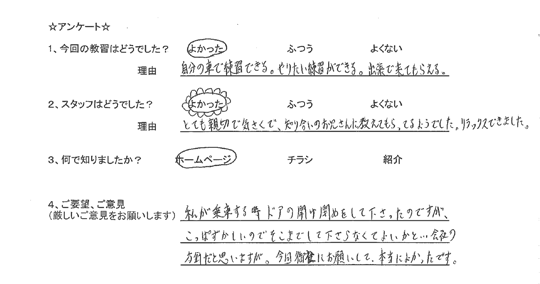 ☆アンケート☆
1、今回の教習はどうでした？ よかった ふつう よくない
理由 自分の車で練習できる。やりたい練習ができる。出張で来てもらえる。
2、スタッフはどうでした？ よかった ふつう よくない
理由 とても親切で気さくで、知り合いのお兄さんに教えてもらってるようでした。リラックスできました。
3、何で知りましたか？ ホームページ チラシ 紹介
4、ご要望、ご意見
(厳しいご意見をお願いします)
私が乗車する時ドアの開け閉めをして下さったのですが、
こっぱずかしいのでそこまでして下さらなくてよいかと…会社の
方針だと思いますが。今回 お願いして、本当によかったです。